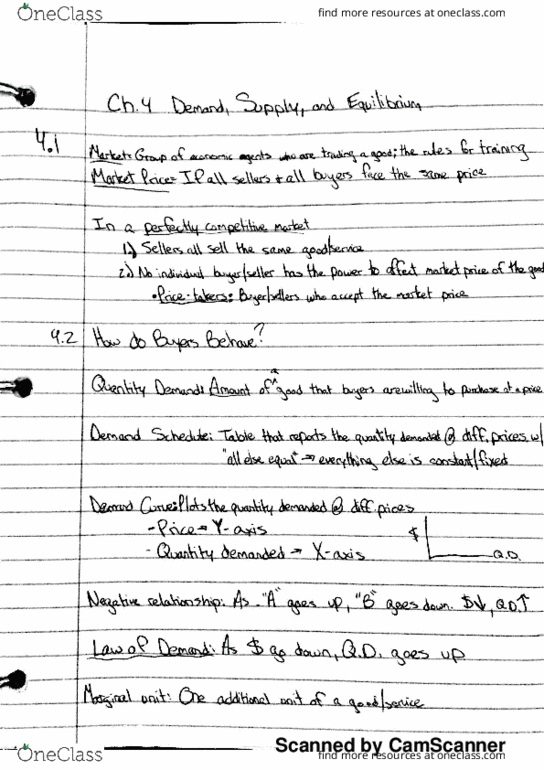 OneClass
find more resources at oneclass.com
Ch.4 Demand, Supply, and Equilibrium
4.1
Market: Group of economic agents who are trading a good; the rules for training
Market Price: If all sellers + all buyers face the same price
In a perfectly competitive market
1.) Sellers all sell the same good/service
2.) No individual buyer/seller has the power to affect market price of the good
• Price-takers: Buyer/sellers who accept the market price
4.2 How do Buyers Behave?
Quantity Demand: Amount of a good that buyers are willing to purchase at a price
Demand Schedule: Table that reports the quantity demanded @ diff. prices w/
"all else equal" → everything else is constant/fixed
Demand Curve: Plots the quantity demanded @ diff. prices
- Price → Y-axis
$
- Quantity demanded → X-axis
Q.D.
Negative relationship: As "A" goes up, "B" goes down. $↓, QD↑
Law of Demand: As $ go down, Q.D. goes up
Marginal unit: One additional unit of a good/service
Scanned by CamScanner
OneClass
find more resources at oneclass.com